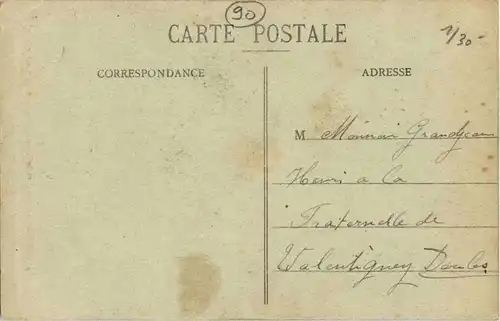 90
1/30-
CARTE POSTALE
CORRESPONDANCE
ADRESSE
M Monsieur Grandjean
Henri a la
Fraternelle de
Valentigney Doubs